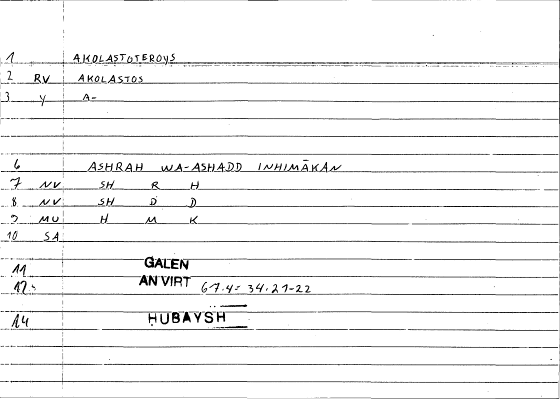 1 AKOLASTOTEROYS
2 RV AKOLASTOS
3 Y A-
6 ASHRAH WA-ASHADD INHIMĀKĀN
7 NV SH R H
8 NV SH D D
9 MU H M K
10 SA
11 GALEN
12 AN VIRT 67.4= 34.21-22
14 ḤUBAYSH